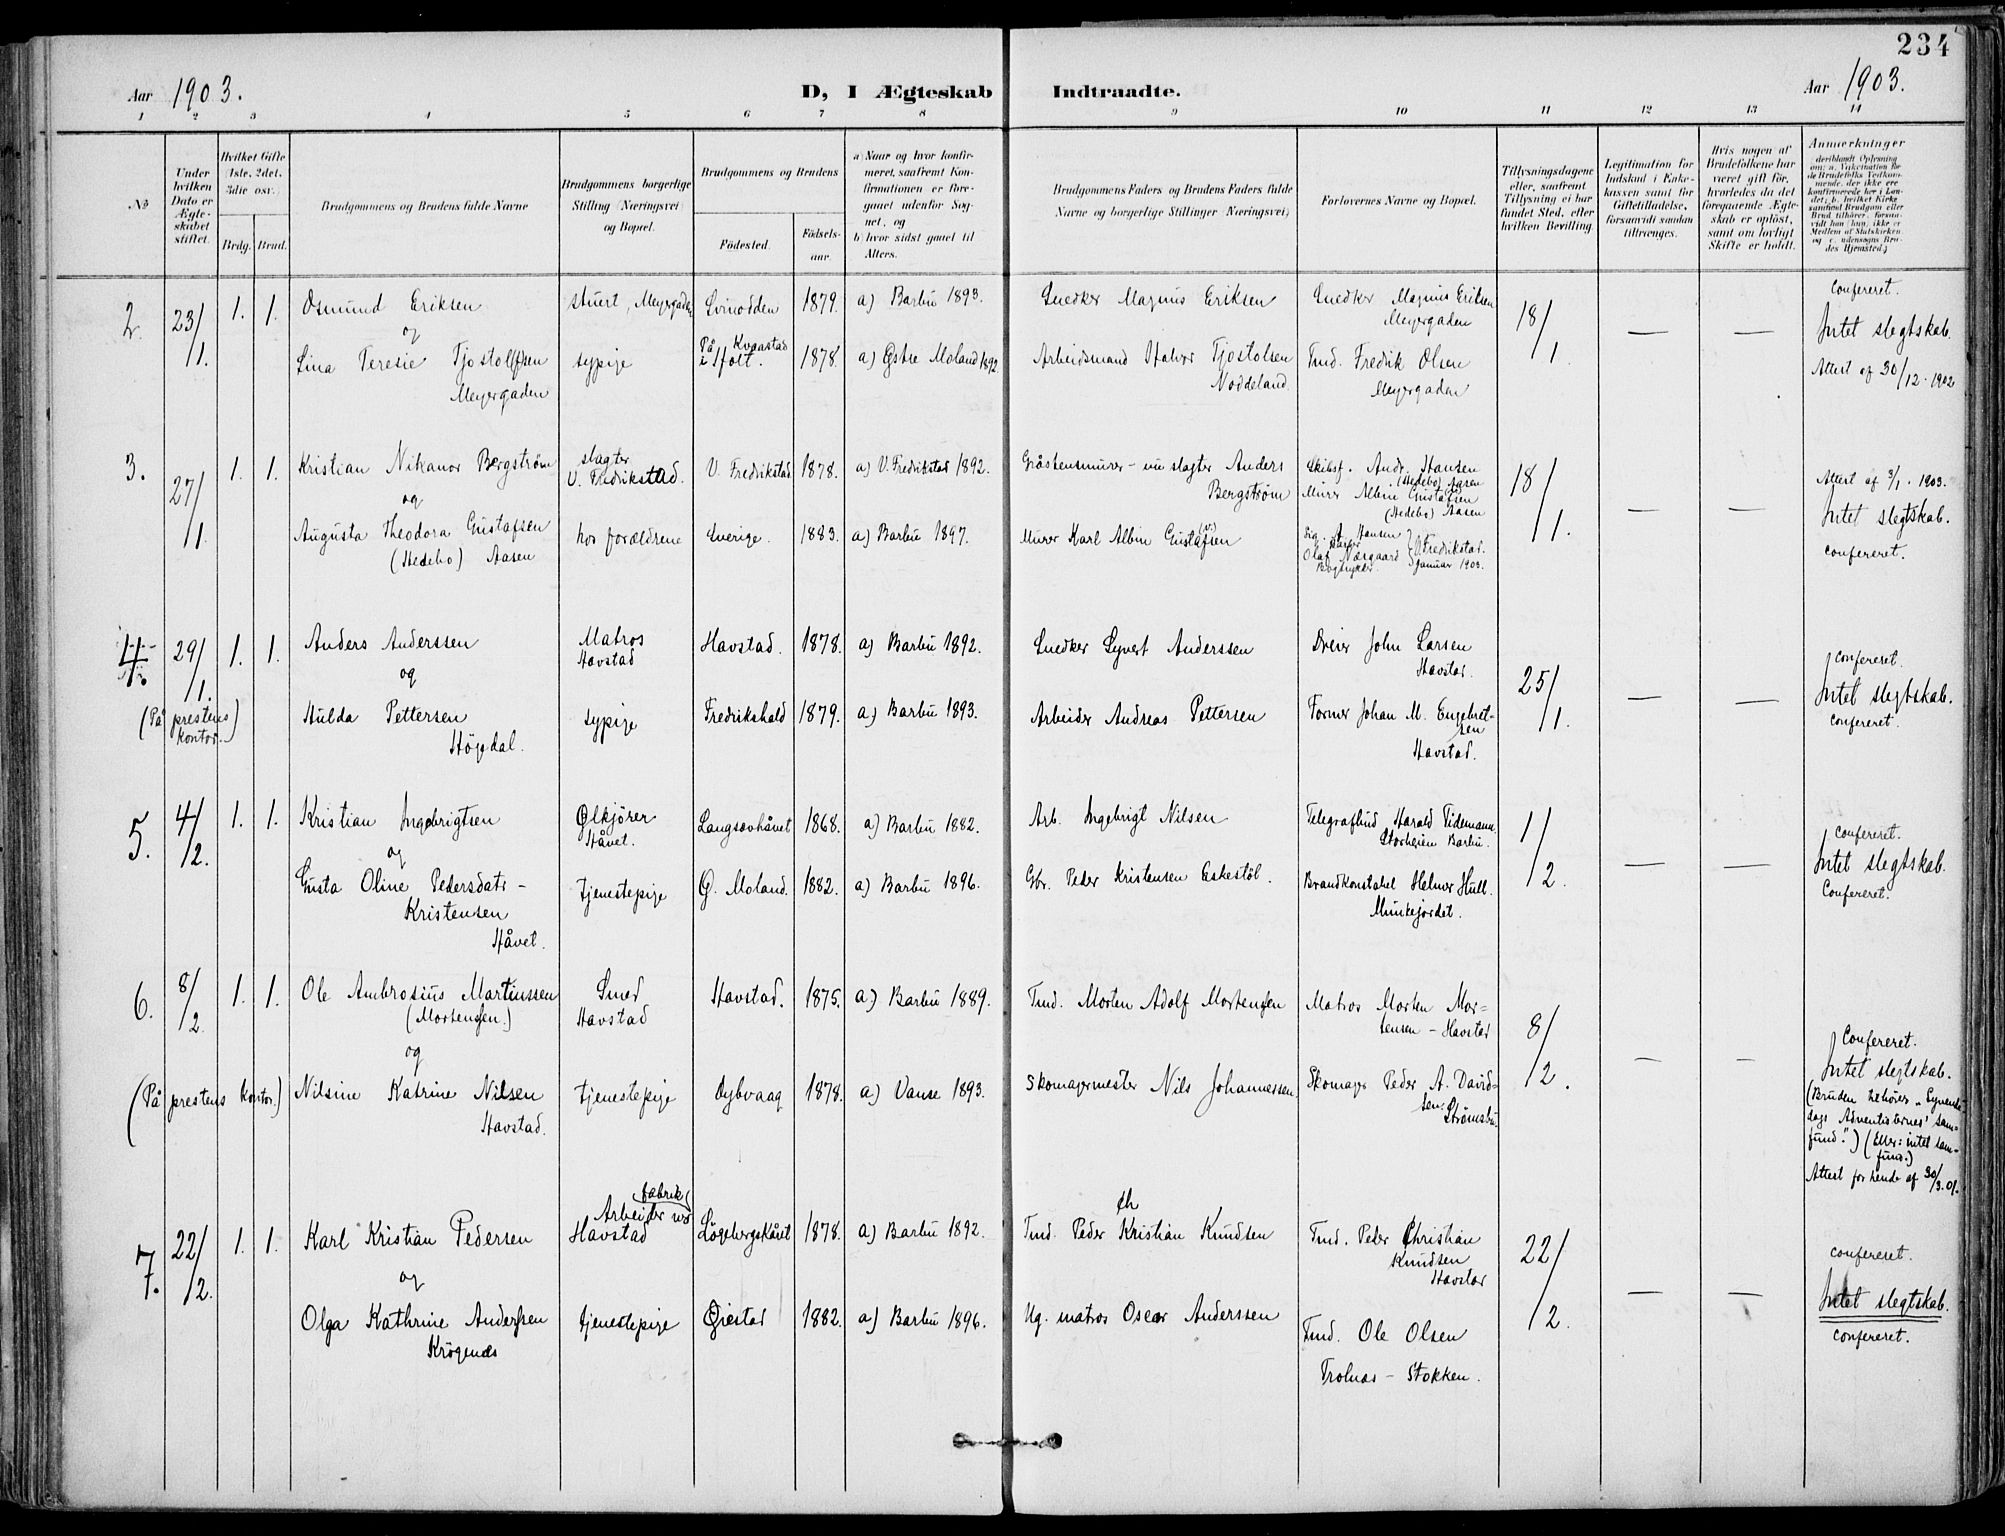 234
Aar 1903.
D, I Ægteskab Indtraadte.
Aar 1903.
1 2 3 4 5 6 7 8 9 10 11 12 13 14
No
Under hvilken Dato er Ægteskabet stiftet.
Hvilket Gifte (1ste, 2det, 3die osv.)
Brdg. Brud.
Brudgommens og Brudens fulde Navne
Brudgommens borgerlige Stilling (Næringsvei) og Bopæl.
Brudgommens og Brudens
Födested.
Födselsaar.
a) Naar og hvor konfirmeret, saafremt Konfirmationen er foregaaet udenfor Sognet, og
b) hvor sidst gaaet til Alters.
Brudgommens Faders og Brudens Faders fulde Navne og borgerlige Stillinger (Næringsvei)
Forlovernes Navne og Bopæl.
Tillysningsdagene eller, saafremt Tillysning ei har fundet Sted, efter hvilken Bevilling.
Legitimation for Indskud i Enkekassen samt for Giftetilladelse, forsaavidt saadan tiltrænges.
Hvis nogen af Brudefolkene har været gift før, hvorledes da det foregaaende Ægteskab er oplöst, samt om lovligt Skifte er holdt.
Anmærkninger
2. 23/1. 1. 1. Osmund Eriksen
og
Lina Teresie Tjostolfsen
Meyergaden
stuert, Meyergaden
sypige
Svinodden 1879. a) Barbu 1893.
På Kvaastad i Holt. 1878. a) Østre Moland 1892
Snedker Magnus Eriksen
Arbeidsmand Halvor Tjostolsen
Noddeland.
Snedker Magnus Eriksen
Meyergaden
Tmd. Fredrik Olsen
Meyergaden
18/1.
— —
Confereret.
Intet slegtskab.
Attest af 30/12. 1902
3. 27/1. 1. 1. Kristian Nikanor Bergström
og
Augusta Theodora Gustafsen
(Hedebo) Aasen
slagter
V. Fredrikstad.
hos forældrene
V. Fredrikstad 1878. a) V. Fredrikstad 1892.
Sverige. 1883. a) Barbu 1897.
Gråstensmurer - nu slagter Anders
Bergström
Murer Karl Albin Gustafsen
Skibsf. Andr. Hansen
(Hedebo) Aasen
Murer Albin Gustafsen
(Hedebo) Aasen
Sig. A. Hansen
Olaf Nørgaard
Bogtrykker
V. Fredrikstad.
Januar 1903.
18/1.
— —
Attest af 3/1. 1903.
Intet slegtskab.
confereret.
4. 29/1. 1. 1. Anders Anderssen
og
Hulda Pettersen
Högedal.
(På prestens kontor.)
Matros
Havstad
sypige
Havstad. 1878. a) Barbu 1892.
Fredrikshald 1879. a) Barbu 1893.
Snedker Syvert Anderssen
Arbeider Andreas Pettersen
Dreier John Larsen
Havstad.
Former Johan M. Engebretsen
Havstad.
25/1.
— —
confereret.
Intet slegtskab.
confereret.
5. 4/2. 1. 1. Kristian Ingebrigtsen
og
Gusta Oline Pedersdatr -
Kristensen
Håvet.
Ølkjörer
Håvet.
tjenestepige
Langsævhåvet 1868. a) Barbu 1882.
Ø. Moland. 1882. a) Barbu 1896.
Arb. Ingebrigt Nilsen
Gbr. Peder Kristensen Eskestöl.
Telegrafbud Harald Tidemann.
Storheien Barbu.
Brandkonstabel Helmer Hull.
Munkejordet.
1/2.
— —
confereret.
Intet slegtskab.
Confereret.
6. 8/2. 1. 1. Ole Ambrosius Martinssen
(Mortensen.)
og
Nilsine Katrine Nilsen
Havstad.
(På prestens kontor.)
Smed
Havstad
tjenestepige
Havstad. 1875. a) Barbu 1889.
Dybvaag 1878. a) Vanse 1893.
Tmd. Morten Adolf Mortensen
Skomagermester Nils Johannessen.
Matros Morten Mortensen - Havstad
Skomager Peder A. Davidsen. Strömsbu.
8/2.
— —
Confereret.
Intet slegtskab.
(Bruden tilhører „Syvende dags Adventisternes' samfund.") (Eller: intet samfund.)
Attest for hende af 30/3.01.
7. 22/2. 1. 1. Karl Kristian Pedersen
og
Olga Kathrine Andersen
Krögenæs
fabrik
Arbeider ved
Havstad
tjenestepige
Lögebergskåret 1878. a) Barbu 1892.
Øiestad 1882. a) Barbu 1896.
Ch
Tmd. Peder Kristian Knudsen
Ug. matros Oscar Anderssen
Tmd. Peder Christian
Knudsen
Havstad
Tmd. Ole Olsen
Trolnæs - Stokken.
22/2.
— —
confereret.
Intet slegtskab.
confereret.